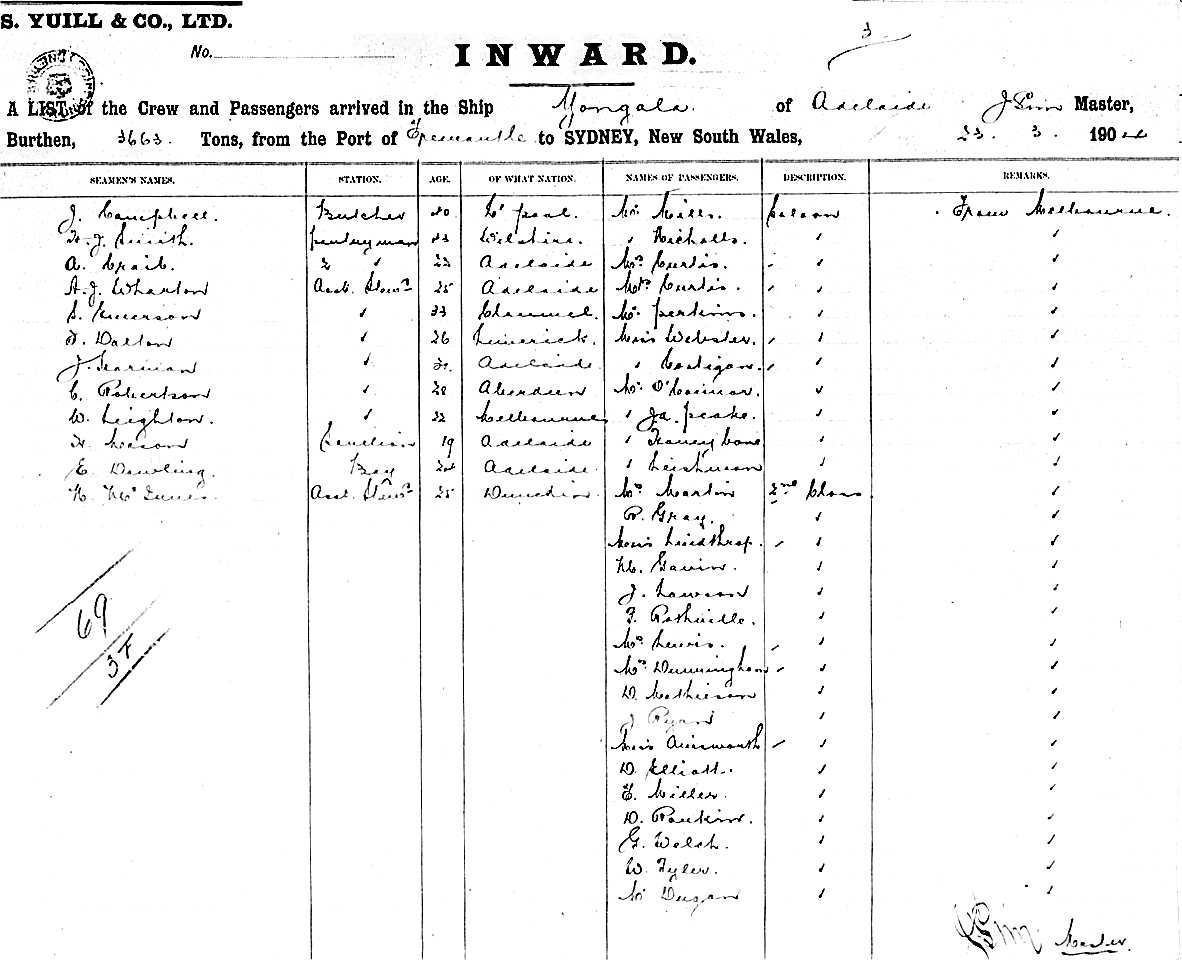 S. YUILL & CO., LTD.
No.
3
INWARD.
A LIST of the Crew and Passengers arrived in the Ship Yongala of Adelaide J Sim Master,
Burthen, 3663. Tons, from the Port of Fremantle to SYDNEY, New South Wales, 23. 3. 1904
SEAMEN'S NAMES. STATION. AGE. OF WHAT NATION. NAMES OF PASSENGERS. DESCRIPTION. REMARKS.
J. Campbell. Butcher 40 L'pool. Mr. Mills. Saloon From Melbourne.
H. J. Smith. Pantryman 23 Wilshire. " Nicholls. " "
A. Craib. 2 " 22 Adelaide Mrs Curtis. " "
A. J. Wharton Asst. Stewd 25 Adelaide Curtis. " "
S. Emerson " 33 Mr. Perkins. " "
F. Dalton " 26 Limerick. Miss Webster. " "
J. " Adelaide " Costigan. " "
C. Robertson " 28 Aberdeen Mr. O'Connor. " "
W. Leighton. " 22 Melbourne " Ja. Peake. " "
H. Meeson 19 Adelaide " " "
E. Dowling. Boy Adelaide. " Leishman " "
Asst. Stewd 25 Dunedin. Mr. Martin 2nd Class "
R. Gray. " "
Miss " "
Gavin. " "
J. Lawson " "
F. " "
Mrs Lewis. " "
Mrs Dunningham " "
D. Mathieson " "
J Ryan " "
Miss Ainsworth " "
D. Elliott. " "
E. Miller. " "
D. Rankin. " "
G. Welsh. " "
W. Tyler. " "
Mr Dugan " "
69
37
J Sim Master.